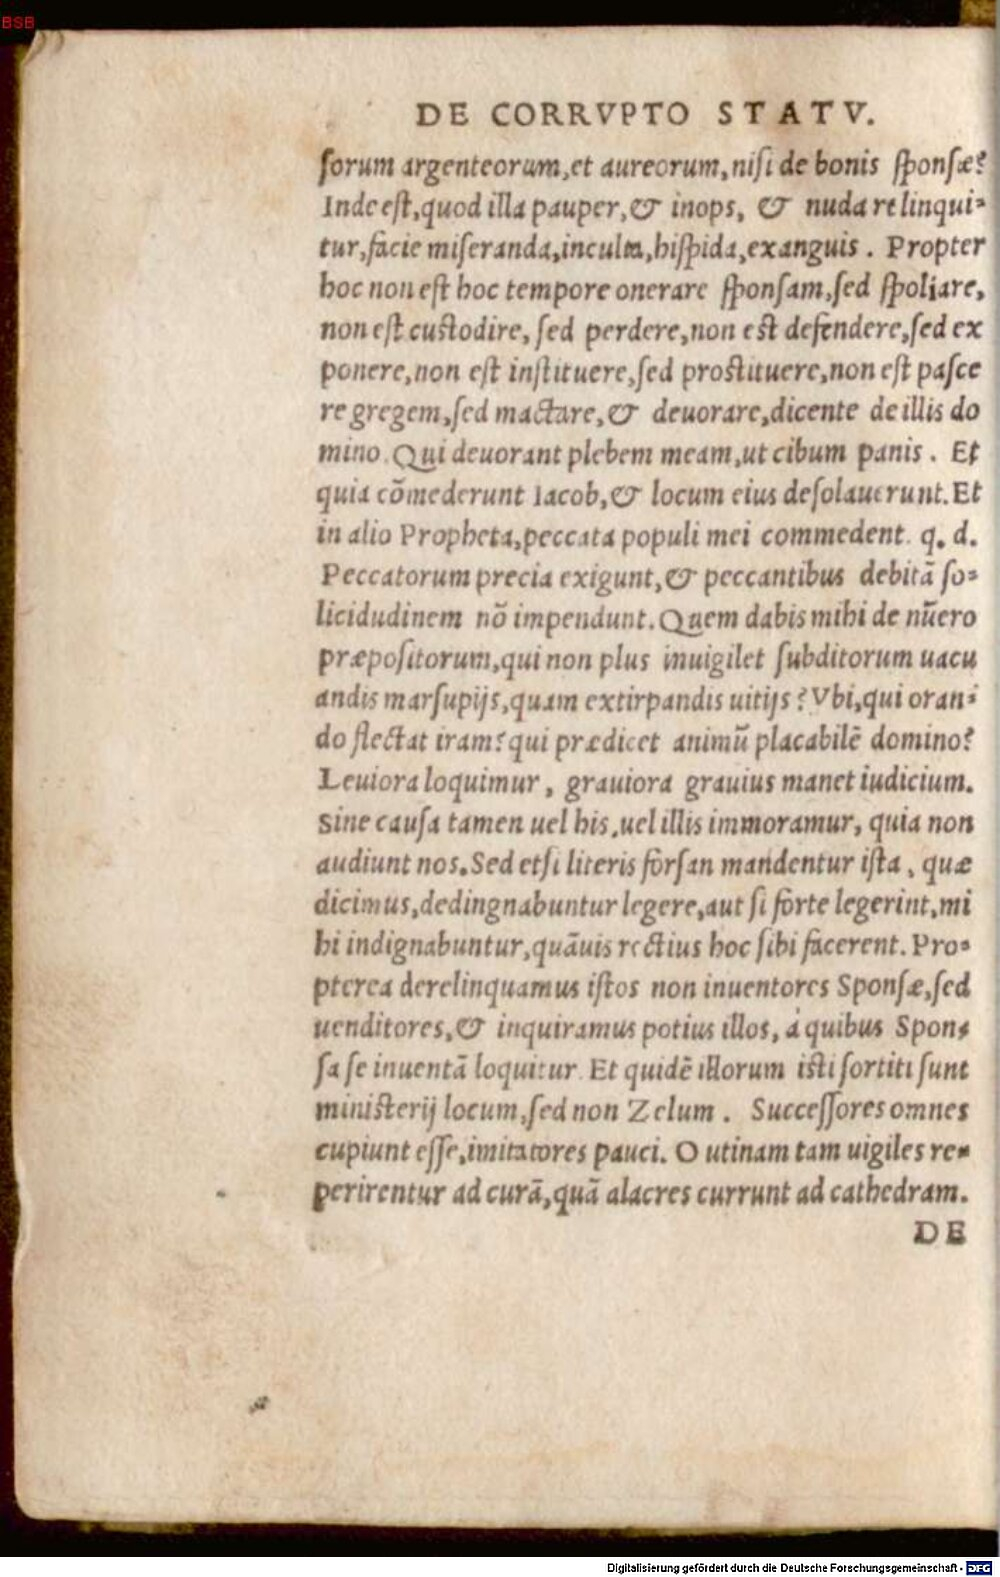 BSB
DE CORRVPTO STATV.
ſorum argenteorum,et aureorum,niſi de bonis ſponſæ?
Inde eſt,quod illa pauper,& inops, & nuda relinqui-
tur,facie miſeranda,inculta,hiſpida,exanguis. Propter
hoc non eſt hoc tempore onerare ſponſam,ſed ſpoliare,
non eſt cuſtodire, ſed perdere,non eſt defendere,ſed ex
ponere,non eſt inſtituere,ſed proſtituere,non eſt paſce
re gregem,ſed mactare,& deuorare,dicente de illis do
mino.Qui deuorant plebem meam,ut cibum panis. Et
quia cõmederunt Iacob,& locum eius deſolauerunt.Et
in alio Propheta,peccata populi mei commedent. q. d.
Peccatorum precia exigunt,& peccantibus debitã ſo-
licidudinem nõ impendunt.Quem dabis mihi de nũero
præpoſitorum,qui non plus inuigilet ſubditorum uacu
andis marſupijs,quam extirpandis uitijs? Vbi,qui oran-
do flectat iram?qui prædicet animũ placabilẽ domino?
Leuiora loquimur, grauiora grauius manet iudicium.
Sine cauſa tamen uel his,uel illis immoramur, quia non
audiunt nos.Sed etſi literis forſan mandentur iſta, quæ
dicimus,dedingnabuntur legere,aut ſi forte legerint,mi
hi indignabuntur,quãuis rectius hoc ſibi facerent. Pro-
pterea derelinquamus iſtos non inuentores Sponſæ,ſed
uenditores,& inquiramus potius illos, à quibus Spon-
ſa ſe inuentã loquitur. Et quidẽ illorum iſti ſortiti ſunt
miniſterij locum,ſed non Zelum. Succeſſores omnes
cupiunt eſſe,imitatores pauci. O utinam tam uigiles re-
perirentur ad curã,quã alacres currunt ad cathedram.
DE
Digitalisierung gefördert durch die Deutsche Forschungsgemeinschaft - DFG